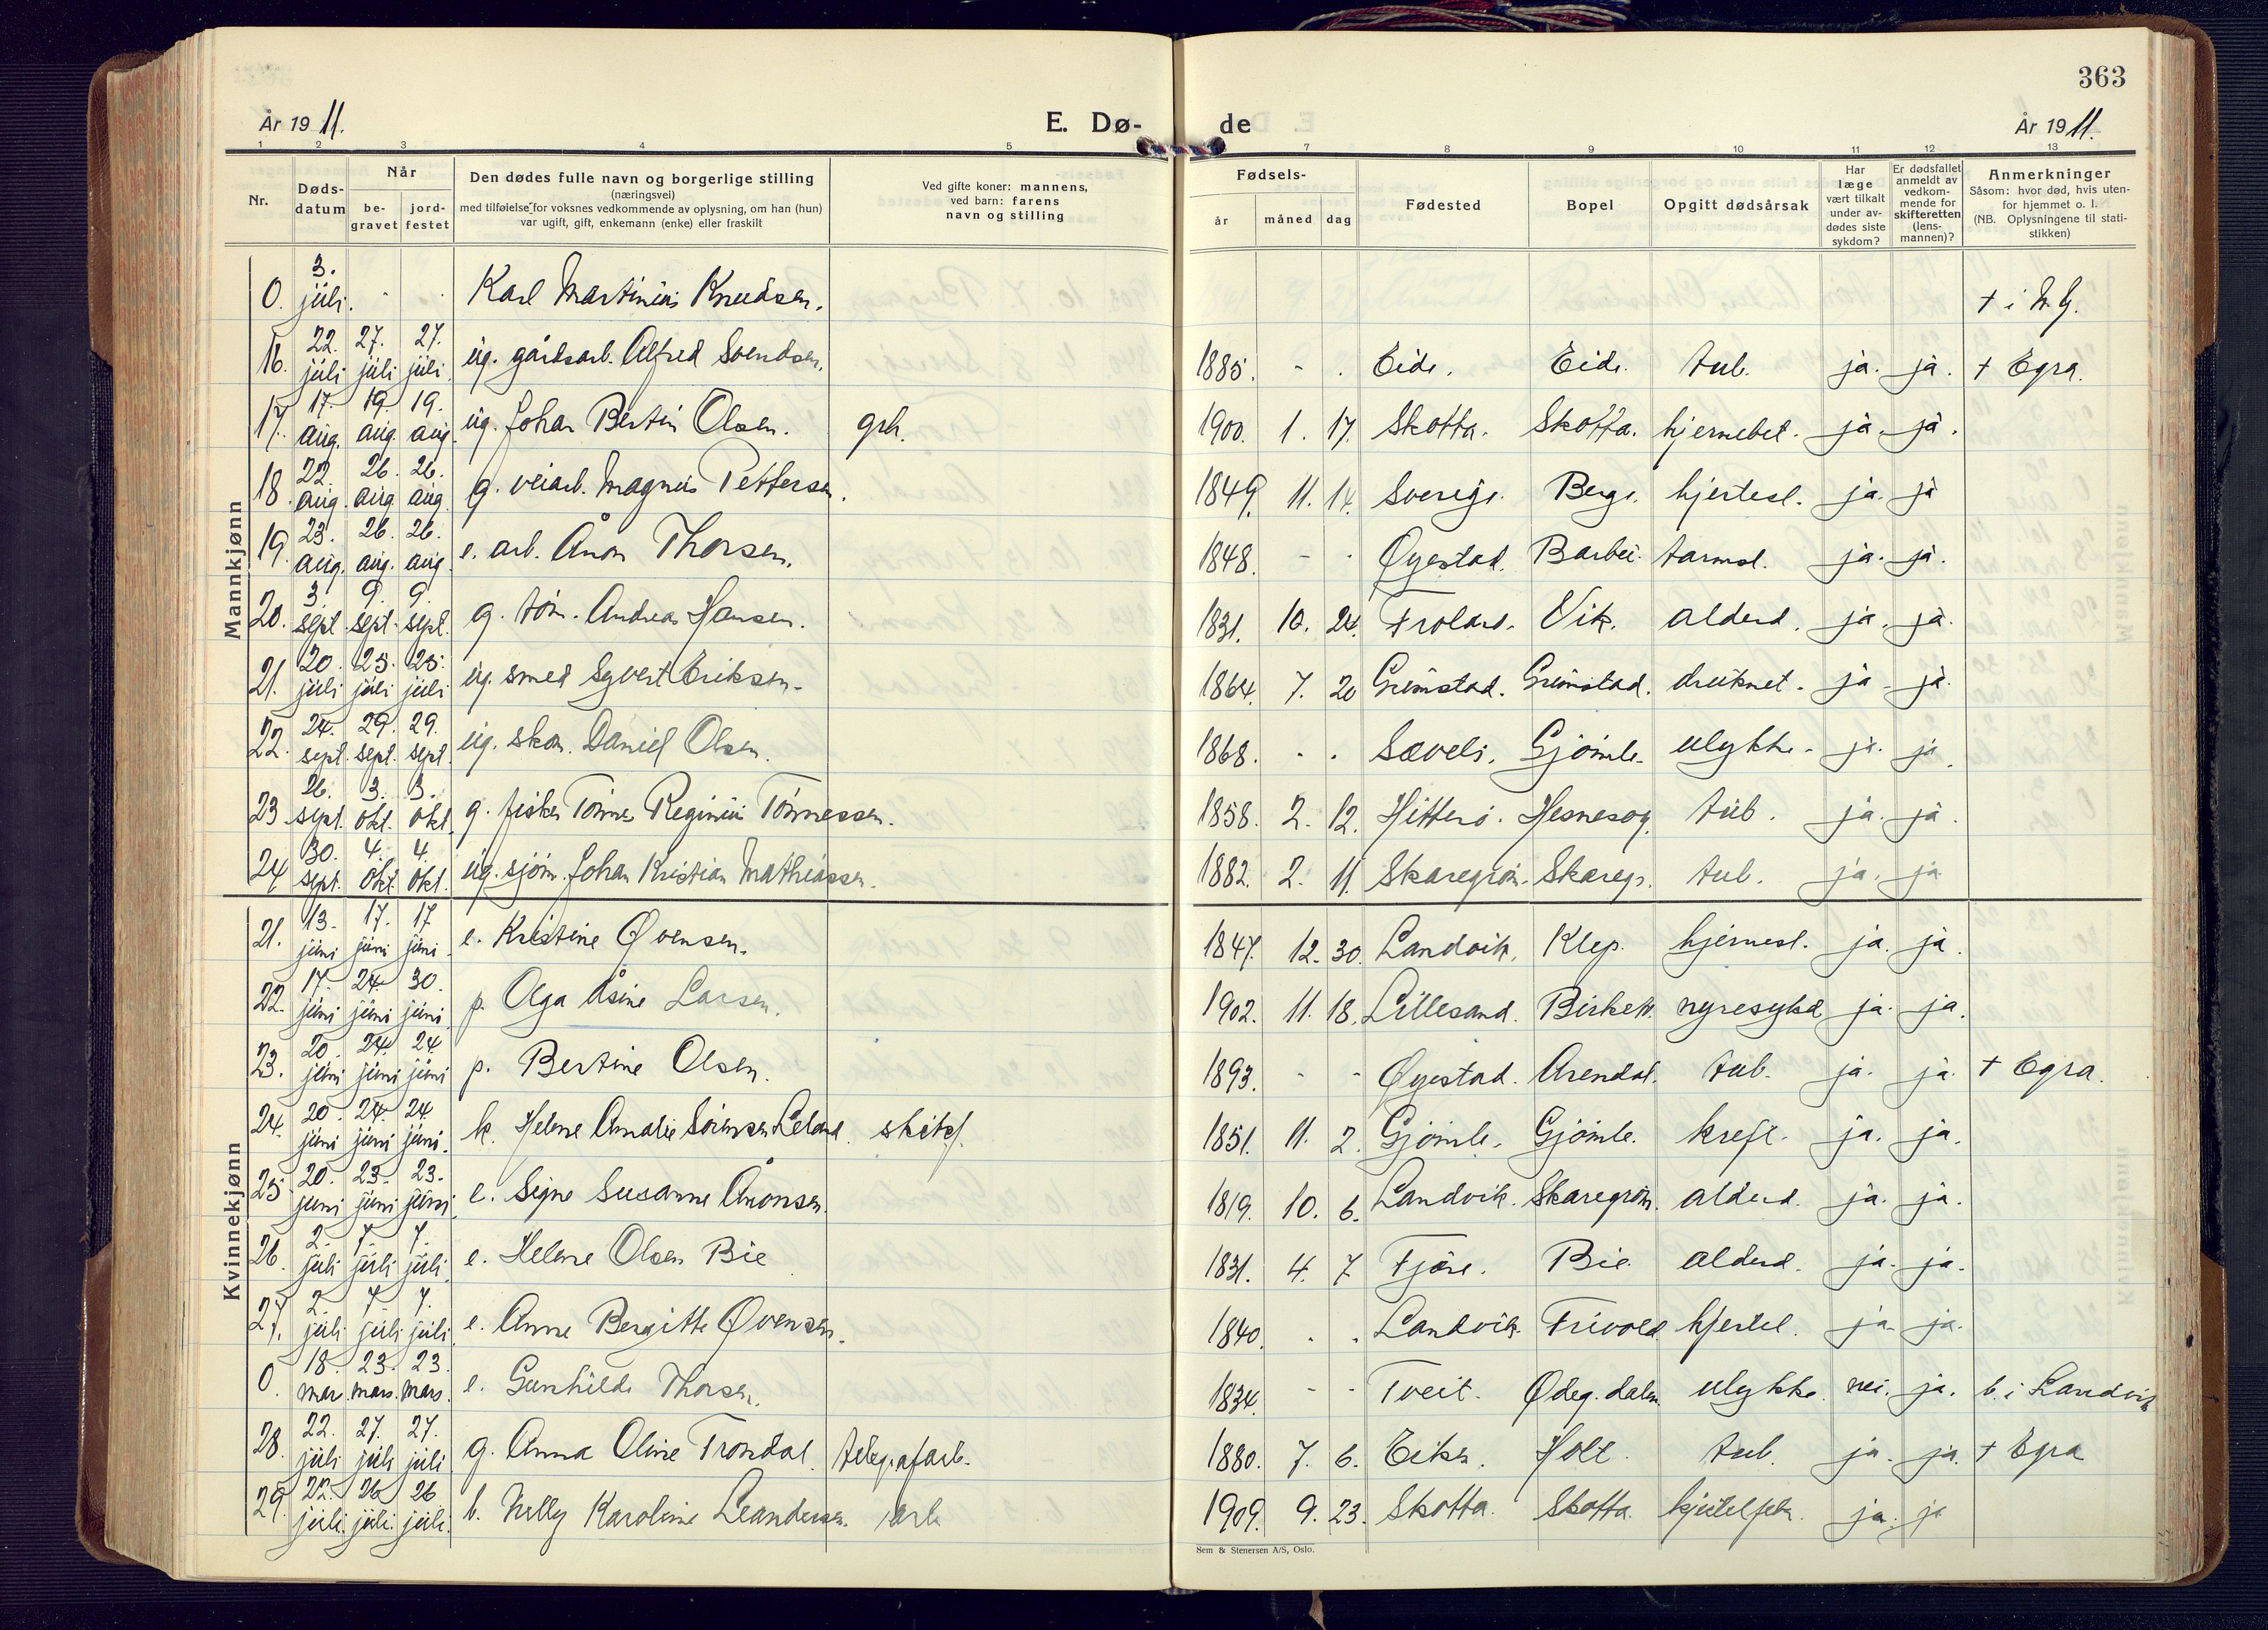 363
År 1911.
E. Dø-
de
År 1911.
1 2 3 4 5 7 8 9 10 11 12 13
Nr.
Døds-
datum
Når
be-
gravet
jord-
festet
Den dødes fulle navn og borgerlige stilling
(næringsvei)
med tilføielse for voksnes vedkommende av oplysning, om han (hun)
var ugift, gift, enkemann (enke) eller fraskilt
Ved gifte koner: mannens,
ved barn: farens
navn og stilling
Fødsels-
år
måned
dag
Fødested
Bopel
Opgitt dødsårsak
Har
læge
vært tilkalt
under av-
dødes siste
sykdom?
Er dødsfallet
anmeldt av
vedkom-
mende for
skifteretten
(lens-
mannen)?
Anmerkninger
Såsom: hvor død, hvis uten-
for hjemmet o. l.
(NB. Oplysningene til stati-
stikken)
Mannkjønn
0. 3. juli. Karl Martinius Knudsen. † i
16. 22. juli 27. juli 27. juli. ug. gårdsarb. Alfred Svendsen. 1885. - . Eide. Eide. tub. ja. ja. † Egra.
17. 17. aug. 19. aug. 19. aug. ug. Johan Bertin Olsen. grh. 1900. 1. 17. Skotta. Skotta. hjernebet. ja. ja.
18. 22. aug. 26. aug. 26. aug. g. veiarb. Magnus Pettersen. 1849. 11. 14. Sverige. Berge. hjertesl. ja. ja
19. 23. aug. 26. aug. 26. aug. e. arb. Ånon Thorsen. 1848. - . Øyestad. Barbu. tarmsl. ja. ja.
20. 3. sept. 9. sept. 9. sept. g. tøm. Andreas Hansen. 1831. 10. 24. Froland. Vik. alderd. ja. ja.
21. 20. juli 25. juli 25. juli ug. smed Syvert Eriksen. 1864. 7. 20 Grimstad. Grimstad. druknet. ja ja.
22. 24. sept. 29. sept. 29. sept ug. skom. Daniel Olsen. 1868. - . Sæveli. Gjømle. ulykke. ja. ja.
23 26. sept. 3. okt. 3. okt. g. fisker Tønnes Reginius Tønnessen. 1858. 2. 12. Hitterø. Hesnesøy. tub. ja. ja.
24 30. sept. 4. okt. 4. okt. ug. sjøm. Johan Kristian Mathiassen. 1882. 2. 11. Skaregrøm. Skaregr. tub. ja. ja
Kvinnekjønn
21. 13. juni 17. juni 17 juni. e. Kristine Ovensen. 1847. 12. 30. Landvik. Klep. hjernesl. ja. ja.
22. 17. juni 24. juni 30. juni. p. Olga Åsine Larsen. 1902. 11. 18. Lillesand. Birket. nyresykd ja. ja.
23. 20. juni 24. juni 24. juni p. Bertine Olsen. 1893. - - Øyestad. Arendal. tub. ja. ja † Egra.
24. 20. juni 24. juni 24. juni. k. Helene Amalie Sørensen Leland. skibsf. 1851. 11. 2. Gjømle. Gjømle. kreft. ja. ja.
25 20. juni 23. juni 23. juni. e. Signe Susanne Ånonsen. 1819. 10. 6. Landvik. Skaregrøm. alderd. ja. ja.
26. 2. juli 7. juli 7. juli. e. Helene Olsen Bie 1831. 4. 7 Fjære. Bie. alderd. ja. ja.
27. 2. juli 7. juli 7. juli. e. Anne Bergitte Ovensen. 1840. . . Landvik. Frivold hjertel. ja. ja.
0. 18. mar. 23. mars. 23. mars. e. Gunhilde Thorsen. 1834. - - Tveit. Ødeg.dalen. ulykke. nei. ja. b. i Landvik
28. 22. juli 27. juli 27. juli. g. Anna Oline Trondal. telegrafarb. 1880. 7. 6. Eiken. Holt. tub. ja. ja. † Egra
29. 22. juli. 26 juli. 26 juli. b. Nelly Karoline Leandersen. arb 1909. 9. 23. Skotta. Skotta. ja. ja
Sem & Stenersen A/S, Oslo.